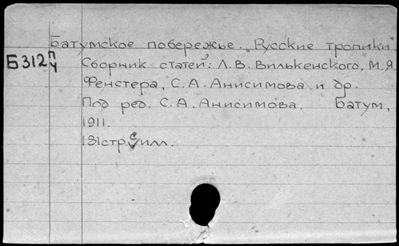 Батумское побережье. „Русские тропики"
Б312 п/ч Сборник статей: Л.В. Вилькенского, М.Я.
Фенстера, С.А. Анисимова и др.
Под ред. С.А. Анисимова. Батум,
1911.
131стр. с илл.